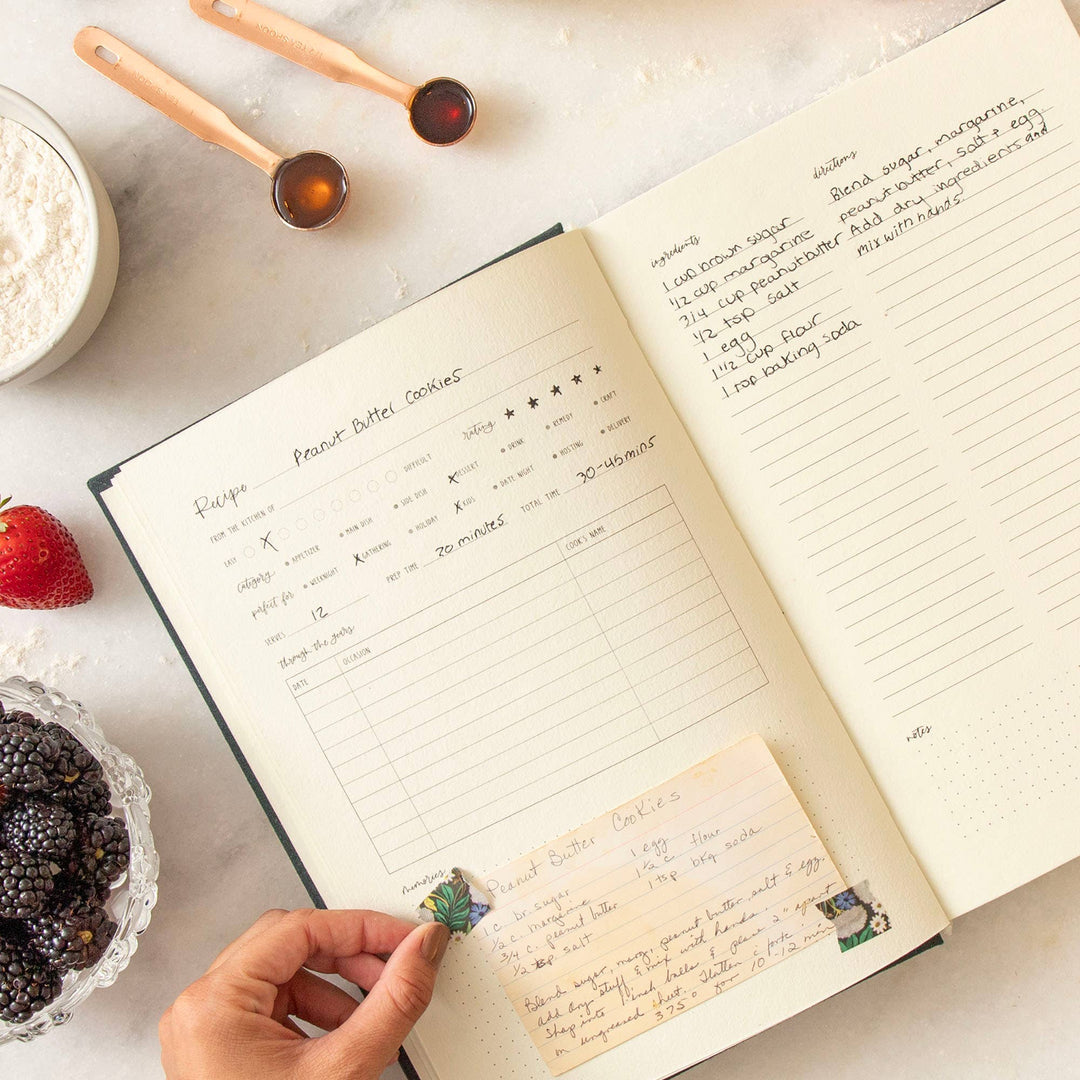 1 TEASPOON
1/4 TEASPOON
Peanut Butter Cookies
Recipe
FROM THE KITCHEN OF
EASY DIFFICULT rating ★ ★ ★ ★ ★
category APPETIZER MAIN DISH SIDE DISH X DESSERT DRINK REMEDY CRAFT
perfect for WEEKNIGHT X GATHERING HOLIDAY X KIDS DATE NIGHT HOSTING DELIVERY
SERVES 12 PREP TIME 20 minutes TOTAL TIME 30-45 mins
through the years
DATE OCCASION COOK'S NAME
memories
Peanut Butter Cookies
1 c. br. sugar
1/2 c. margarine
3/4 c. peanut butter
1/2 tsp salt
1 egg
1 1/2 c flour
1 tsp bkg soda
Blend sugar, marg, peanut butter, salt & egg.
add dry stuff & mix with hands.
Shape into 1 inch balls & place 2" apart
on ungreased sheet. Flatten c fork.
375° for 10-12 min
ingredients
1 cup brown sugar
1/2 cup margarine
3/4 cup peanut butter
1/2 tsp salt
1 egg
1 1/2 cup flour
1 tsp baking soda
directions
Blend sugar, margarine,
peanut butter, salt + egg.
Add dry ingredients and
mix with hands.
notes